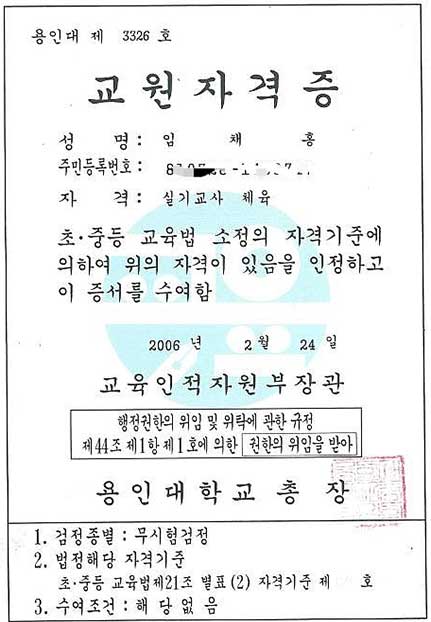 용인대 제 3326 호
교원자격증
성 명 : 임 채 홍
주민등록번호 :
자 격 : 실기교사 체육
초·중등 교육법 소정의 자격기준에
의하여 위의 자격이 있음을 인정하고
이 증서를 수여함
2006 년 2 월 24 일
교육인적자원부장관
행정권한의 위임 및 위탁에 관한 규정
제44조 제1항 제1호에 의한 권한의 위임을 받아
용인대학교총장
1. 검정종별 : 무시험검정
2. 법정해당 자격기준
초·중등 교육법제21조 별표(2) 자격기준 제 호
3. 수여조건 : 해 당 없 음